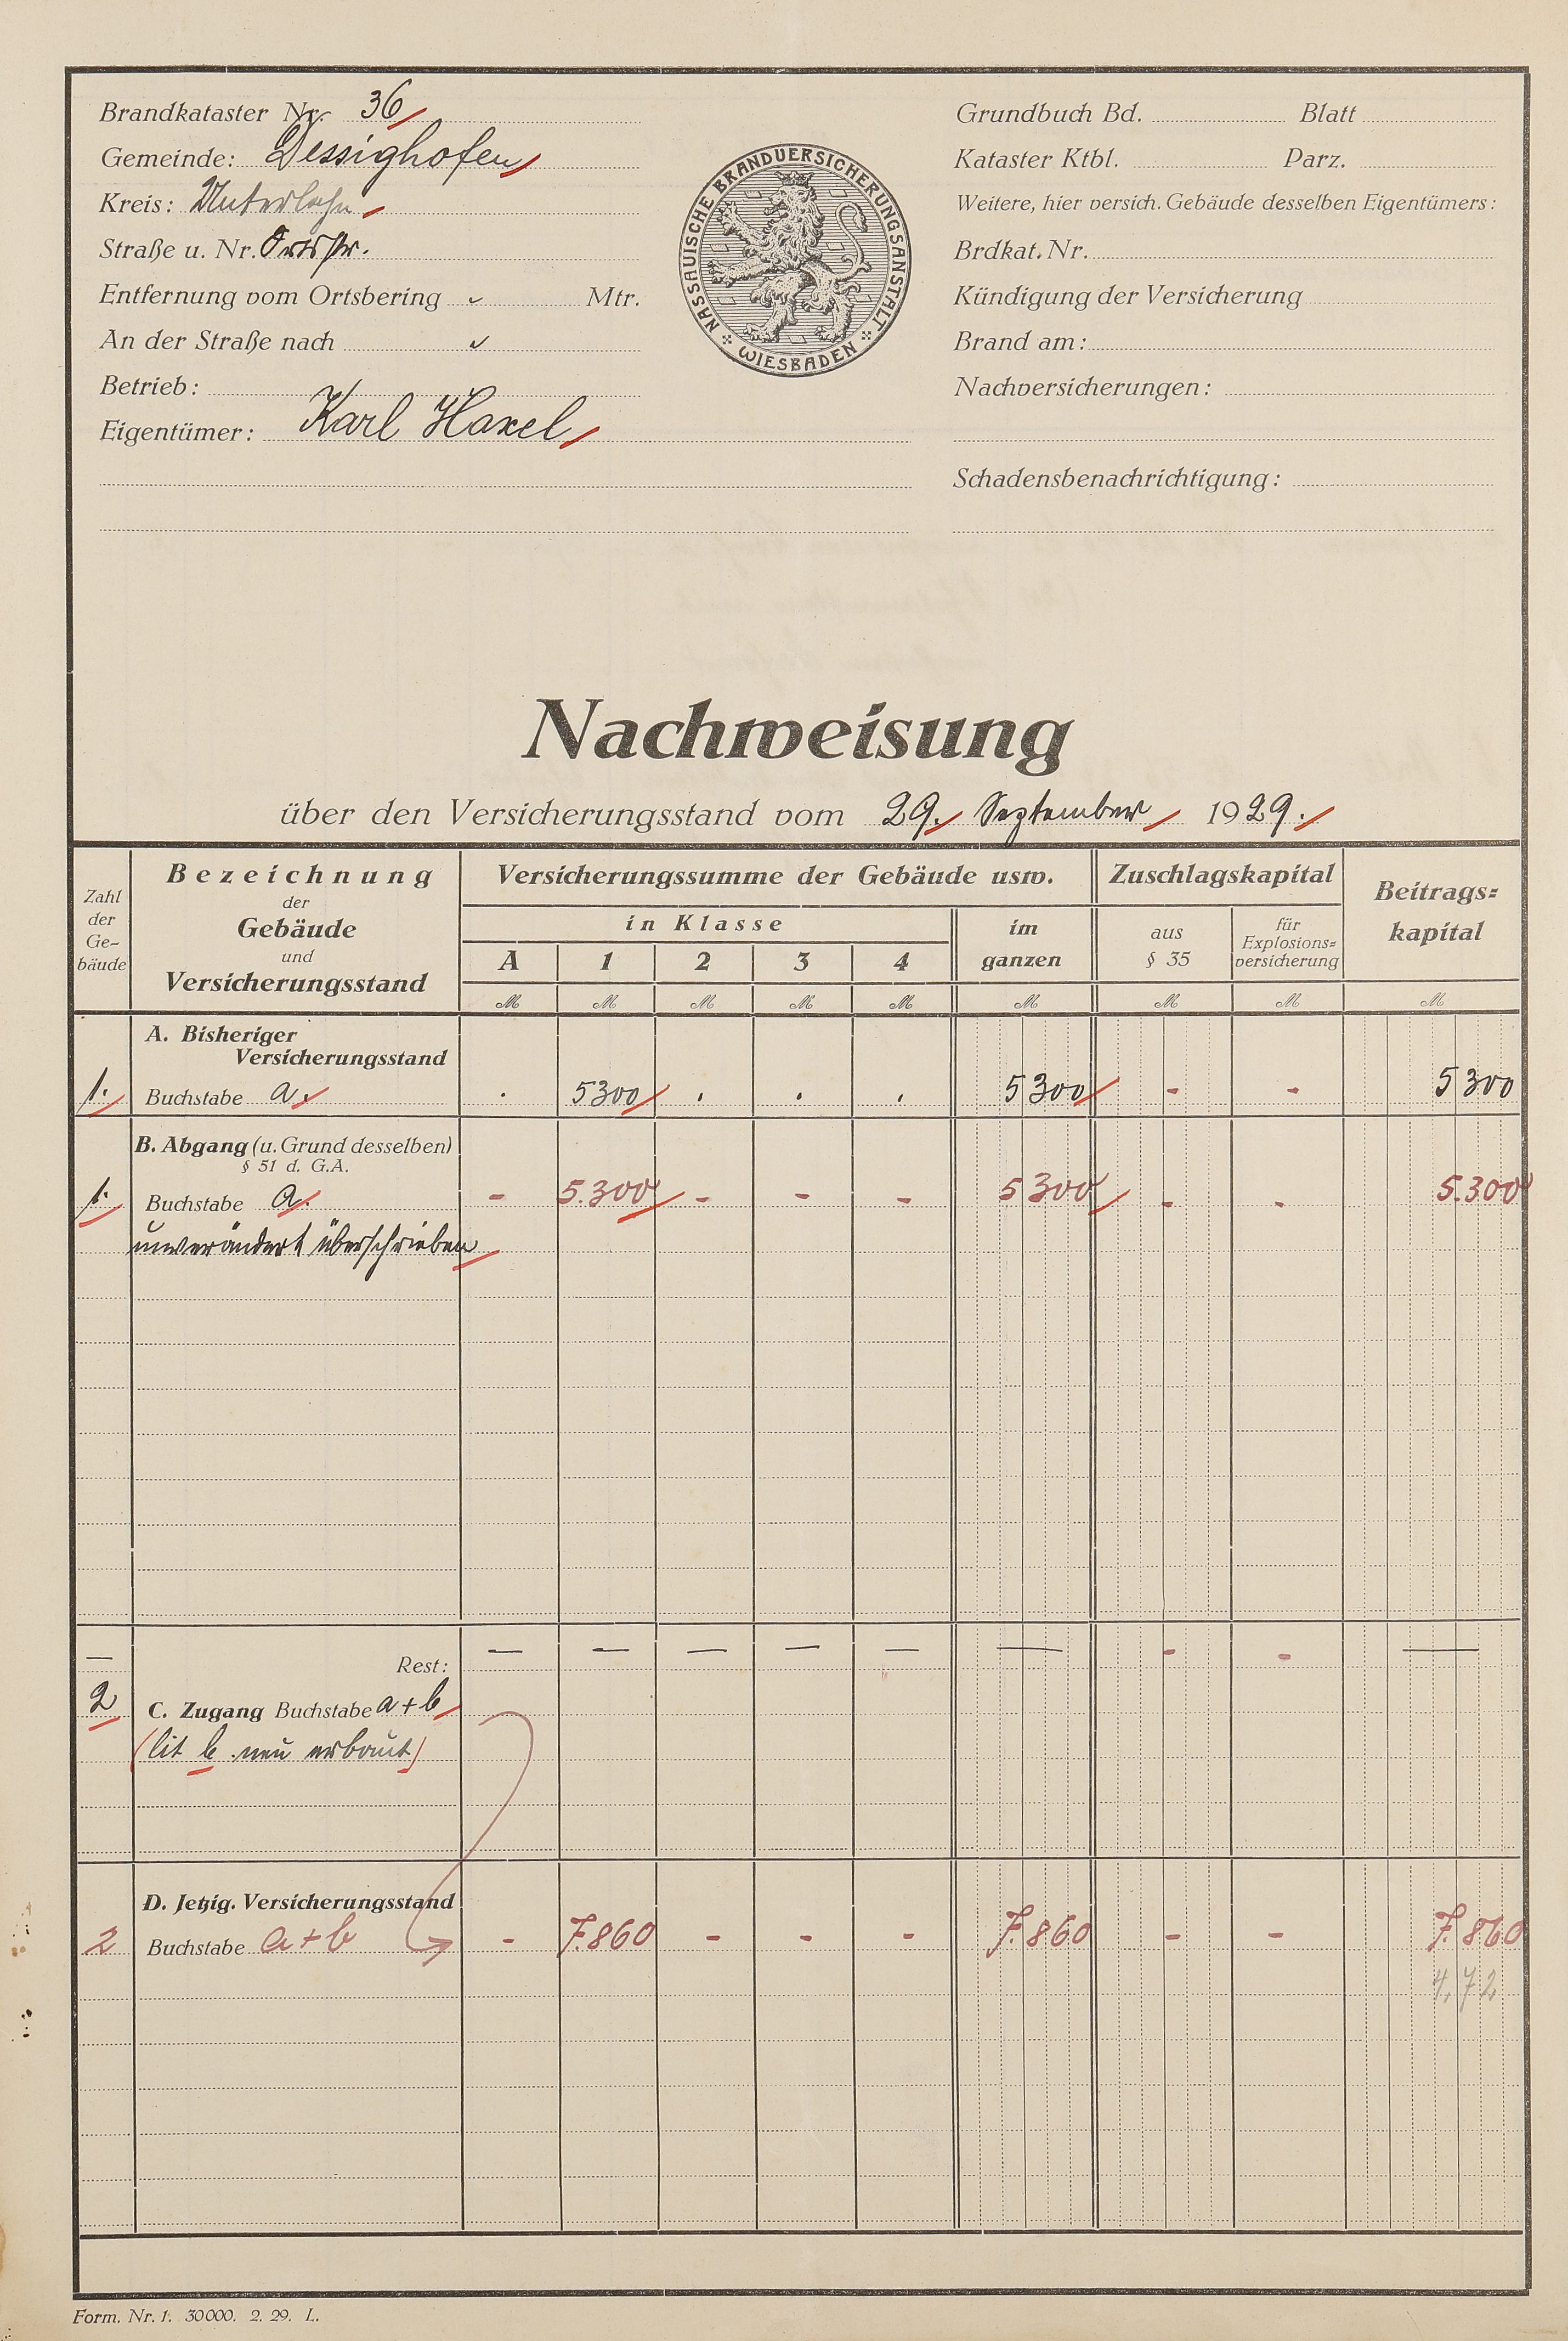 Brandkataster Nr. 36
Gemeinde: Dessighofen
Kreis: Unterlahn
Straße u. Nr. Ortsstr.
Entfernung vom Ortsbering Mtr.
An der Straße nach
Betrieb:
Eigentümer: Karl Haxel
NASSAUISCHE BRANDVERSICHERUNGSANSTALT
WIESBADEN
Grundbuch Bd. Blatt
Kataster Ktbl. Parz.
Weitere, hier versich. Gebäude desselben Eigentümers:
Brdkat. Nr.
Kündigung der Versicherung
Brand am:
Nachversicherungen:
Schadensbenachrichtigung:
Nachweisung
über den Versicherungsstand vom 29. September 1929.
Zahl der Ge- bäude
Bezeichnung der Gebäude und Versicherungsstand
Versicherungssumme der Gebäude usw.
in Klasse
A 1 2 3 4
im ganzen
Zuschlagskapital
aus § 35
für Explosions= versicherung
Beitrags= kapital
M M M M M M M M M
A. Bisheriger
Versicherungsstand
1. Buchstabe a. . 5300 . . . 5300 - - 5300
B. Abgang (u. Grund desselben)
§ 51 d. G.A.
1. Buchstabe a. - 5.300 - - - 5300 - - 5.300
unverändert überschrieben
— Rest: — — — — — — - - —
2 C. Zugang Buchstabe a + b
(lit b. neu erbaut)
D. Jetzig. Versicherungsstand
2 Buchstabe a + b - 7.860 - - - 7.860 - - 7.860
4,72
Form. Nr. 1. 30000. 2. 29. L.